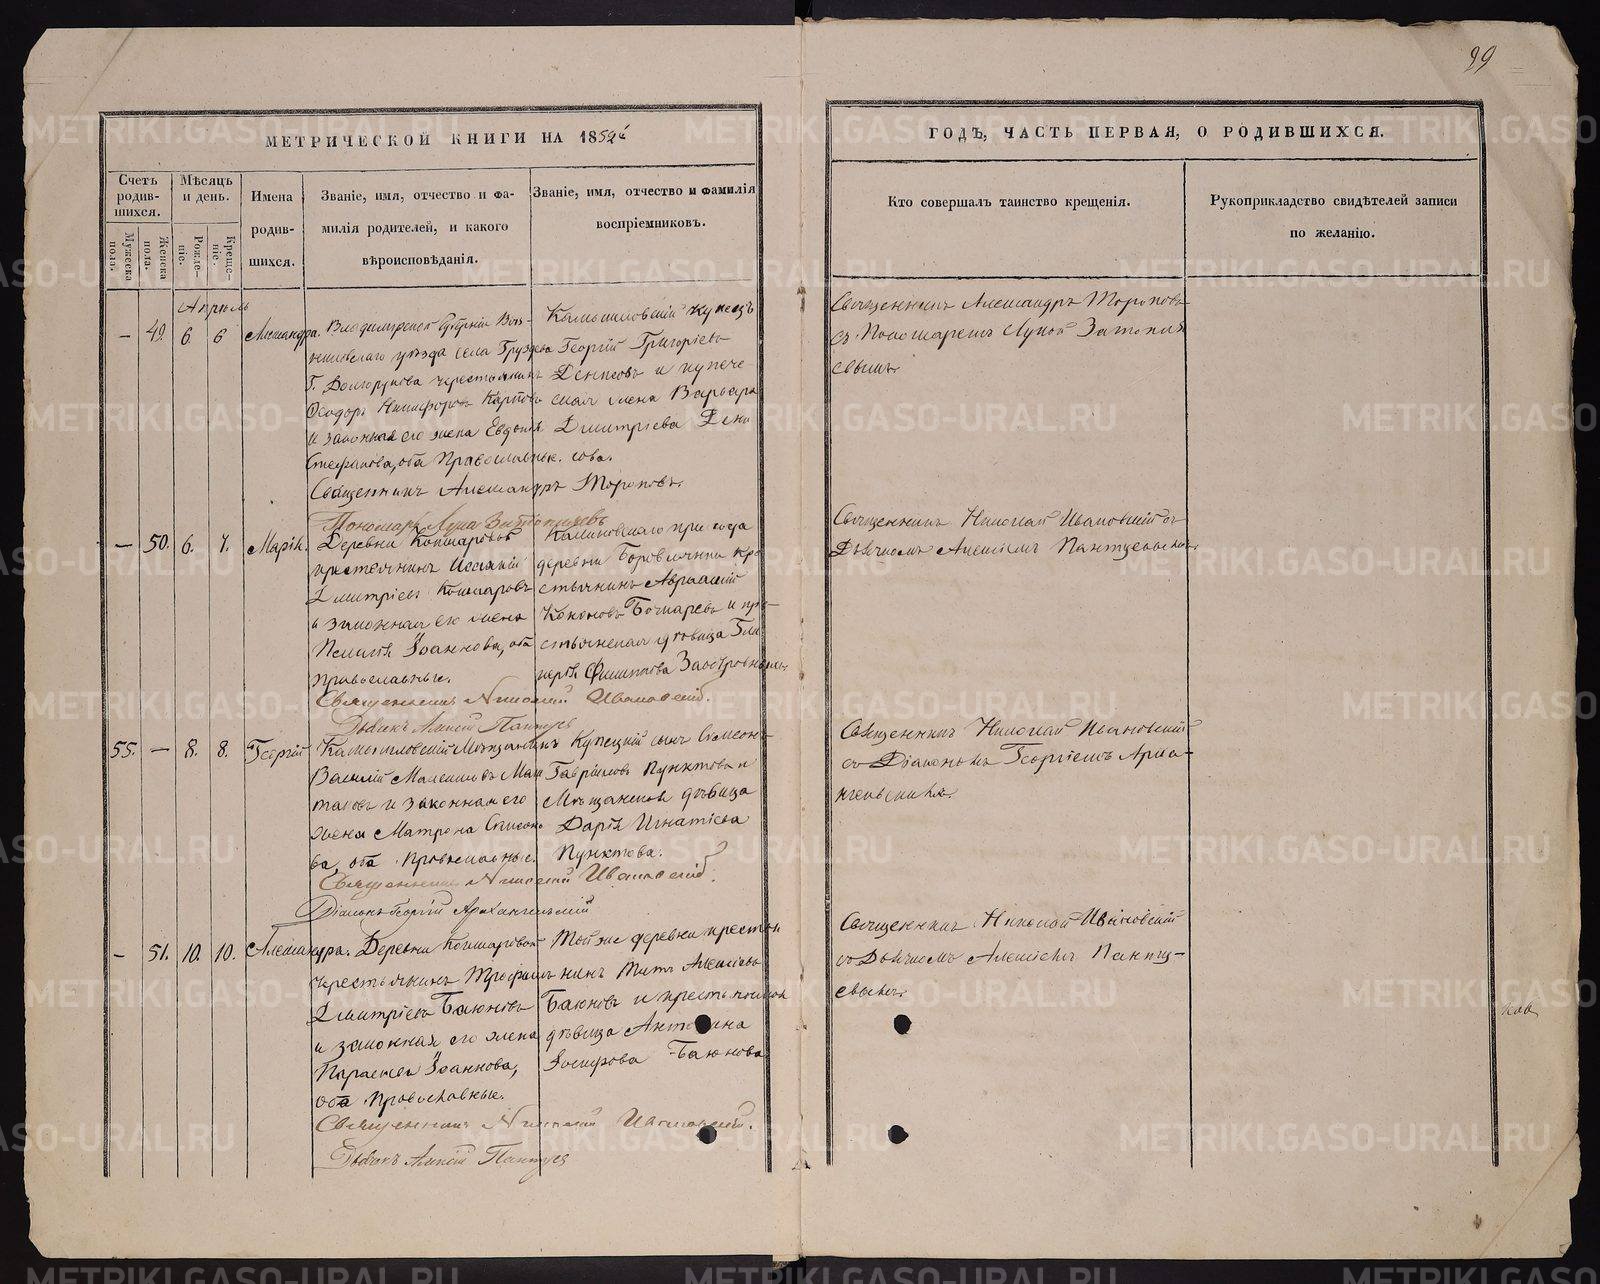 99
МЕТРИЧЕСКОЙ КНИГИ НА 1859й
ГОДЪ, ЧАСТЬ ПЕРВАЯ, О РОДИВШИХСЯ.
Счетъ родив-шихся.
Мужеска пола.
Женска пола.
Мѣсяцъ и день.
Рожде-ніе.
Креще-ніе.
Имена
родив-
шихся.
Званіе, имя, отчество и фа-
милія родителей, и какого
вѣроисповѣданія.
Званіе, имя, отчество и фамилія
воспріемниковъ.
Кто совершалъ таинство крещенія.
Рукоприкладство свидѣтелей записи
по желанію.
Апрѣль
— 49. 6 6 Александра.
Владимірской Губерніи Вяз-
никовскаго уѣзда села Груздева
Г. Долгорукова крестьянинъ
Ѳеодоръ Никифоровъ Карповъ
и законная его жена Евдокія
Стефанова, оба Православные.
Священникъ Александръ Тороповъ.
Пономарь Лука
Камышловскій купецъ
Георгій Григорьевъ
Денисовъ и купече
ская жена Варвара
Димитріева Дени
сова.
Священникъ Александръ Тороповъ
съ Пономаремъ Лукой
— 50. 6. 7. Марія.
Деревни Кошкаровой
крестьянинъ
Димитріевъ Кошкаровъ
и законная его жена
Пелагія Іоаннова, оба
православные.
Священникъ Николай Ивановскій.
Дьячекъ Алексій
Калиновскаго прихода
деревни Боровлянки кре
стьянинъ Авраамій
Бочкаревъ и кре-
стьянская дѣвица
Филиппова
Священникъ Николай Ивановскій съ
Дьячкомъ Алексіемъ
55. — 8. 8. Георгій
Камышловскій Мѣщанинъ
Василій
и законная его
жена Матрона Симеоно
ва, оба православные.
Священникъ Николай Ивановскій.
Діаконъ Георгій Архангельскій
Купецкій сынъ Симеонъ
Гавріиловъ Пунктовъ и
Мѣщанская дѣвица
Дарія Игнатіева
Пунктова.
Священникъ Николай Ивановскій
съ Діакономъ Георгіемъ Арха-
нгельскимъ.
— 51. 10. 10. Александра.
Деревни Кошкаровой
крестьянинъ Трофимъ
Димитріевъ Баюновъ
и законная его жена
Параскева Іоаннова,
оба православные.
Священникъ Николай Ивановскій.
Дьячекъ Алексій
Той же деревни крестья
нинъ Титъ Алексіевъ
Баюновъ и крестьянская
дѣвица Антонина
Іосифова Баюнова
Священникъ Николай Ивановскій
съ Дьячкомъ Алексіемъ
METRIKI.GASO-URAL.RU